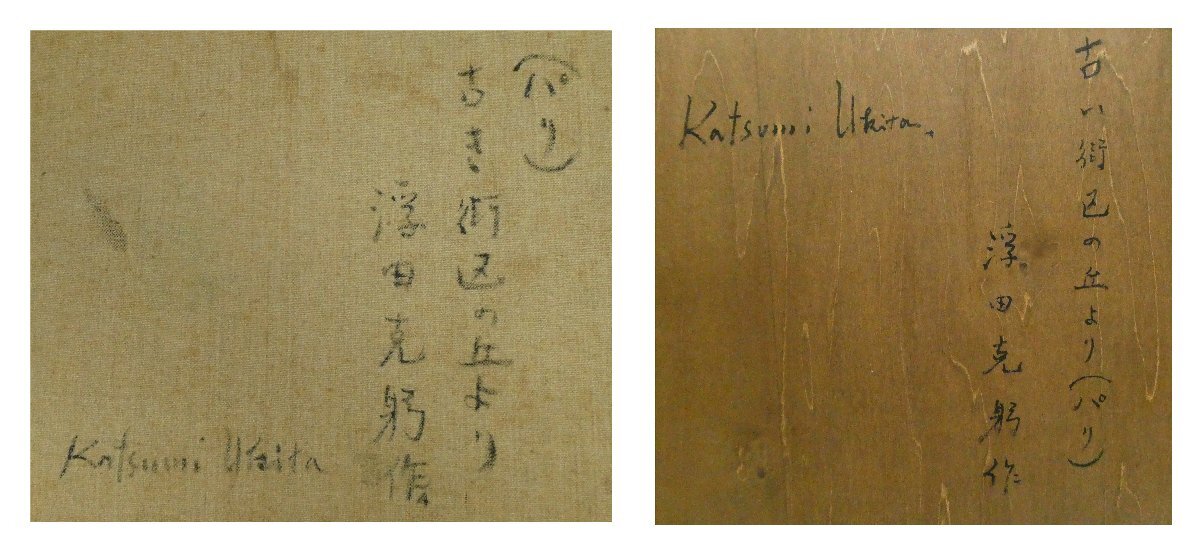 (パリ)
古き街区の丘より
浮田克躬作
Katsumi Ukita
古い街区の丘より(パリ)
浮田克躬作
Katsumi Ukita.